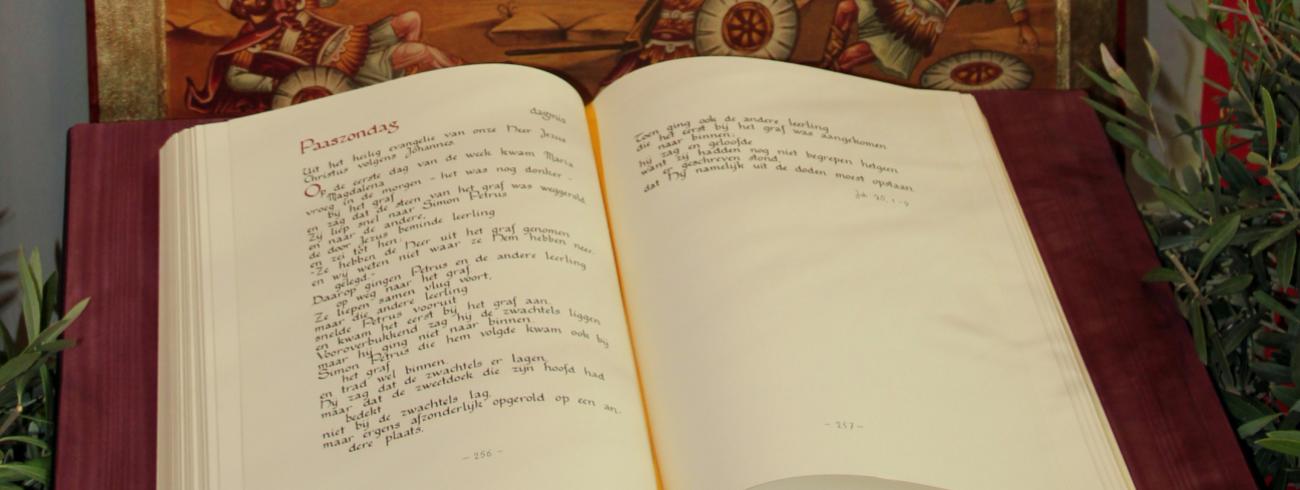 dagmis
Paaszondag
Uit het heilig evangelie van onze Heer Jezus
Christus volgens Johannes.
Op de eerste dag van de week kwam Maria
Magdalena
vroeg in de morgen - het was nog donker -
bij het graf
en zag dat de steen van het graf was weggerold.
Zij liep snel naar Simon Petrus
en naar de andere,
de door Jezus beminde leerling
en zei tot hen:
"Ze hebben de Heer uit het graf genomen
en wij weten niet waar ze Hem hebben neer-
gelegd."
Daarop gingen Petrus en de andere leerling
op weg naar het graf.
Ze liepen samen vlug voort,
maar die andere leerling
snelde Petrus vooruit
en kwam het eerst bij het graf aan.
Vooroverbukkend zag hij de zwachtels liggen
maar hij ging niet naar binnen.
Simon Petrus die hem volgde kwam ook bij
het graf
en trad wel binnen.
Hij zag dat de zwachtels er lagen,
maar dat de zweetdoek die zijn hoofd had
bedekt
niet bij de zwachtels lag,
maar ergens afzonderlijk opgerold op een an-
dere plaats.
- 256 -
Toen ging ook de andere leerling
die het eerst bij het graf was aangekomen
naar binnen;
hij zag en geloofde
want zij hadden nog niet begrepen hetgeen
er geschreven stond,
dat Hij namelijk uit de doden moest opstaan.
Jh. 20, 1-9
- 257 -